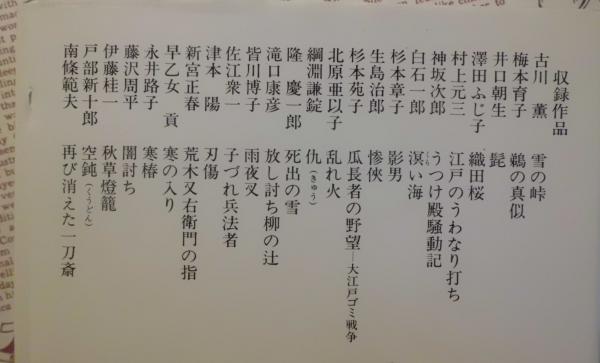 収録作品
古川 薫 雪の峠
梅本育子 鵜の真似
井口朝生 髭
澤田ふじ子 織田桜
村上元三 江戸のうわなり打ち
神坂次郎 うつけ殿騒動記
白石一郎 溟い海
くら
杉本章子 影男
生島治郎 惨侠
杉本苑子 瓜長者の野望―大江戸ゴミ戦争
北原亜以子 乱れ火
綱淵謙錠 仇(きゅう)
隆 慶一郎 死出の雪
滝口康彦 放し討ち柳の辻
皆川博子 雨夜叉
佐江衆一 子づれ兵法者
津本 陽 刃傷
新宮正春 荒木又右衛門の指
早乙女 貢 寒の入り
永井路子 寒椿
藤沢周平 闇討ち
伊藤桂一 秋草燈籠
戸部新十郎 空鈍(くうどん)
南條範夫 再び消えた一刀斎